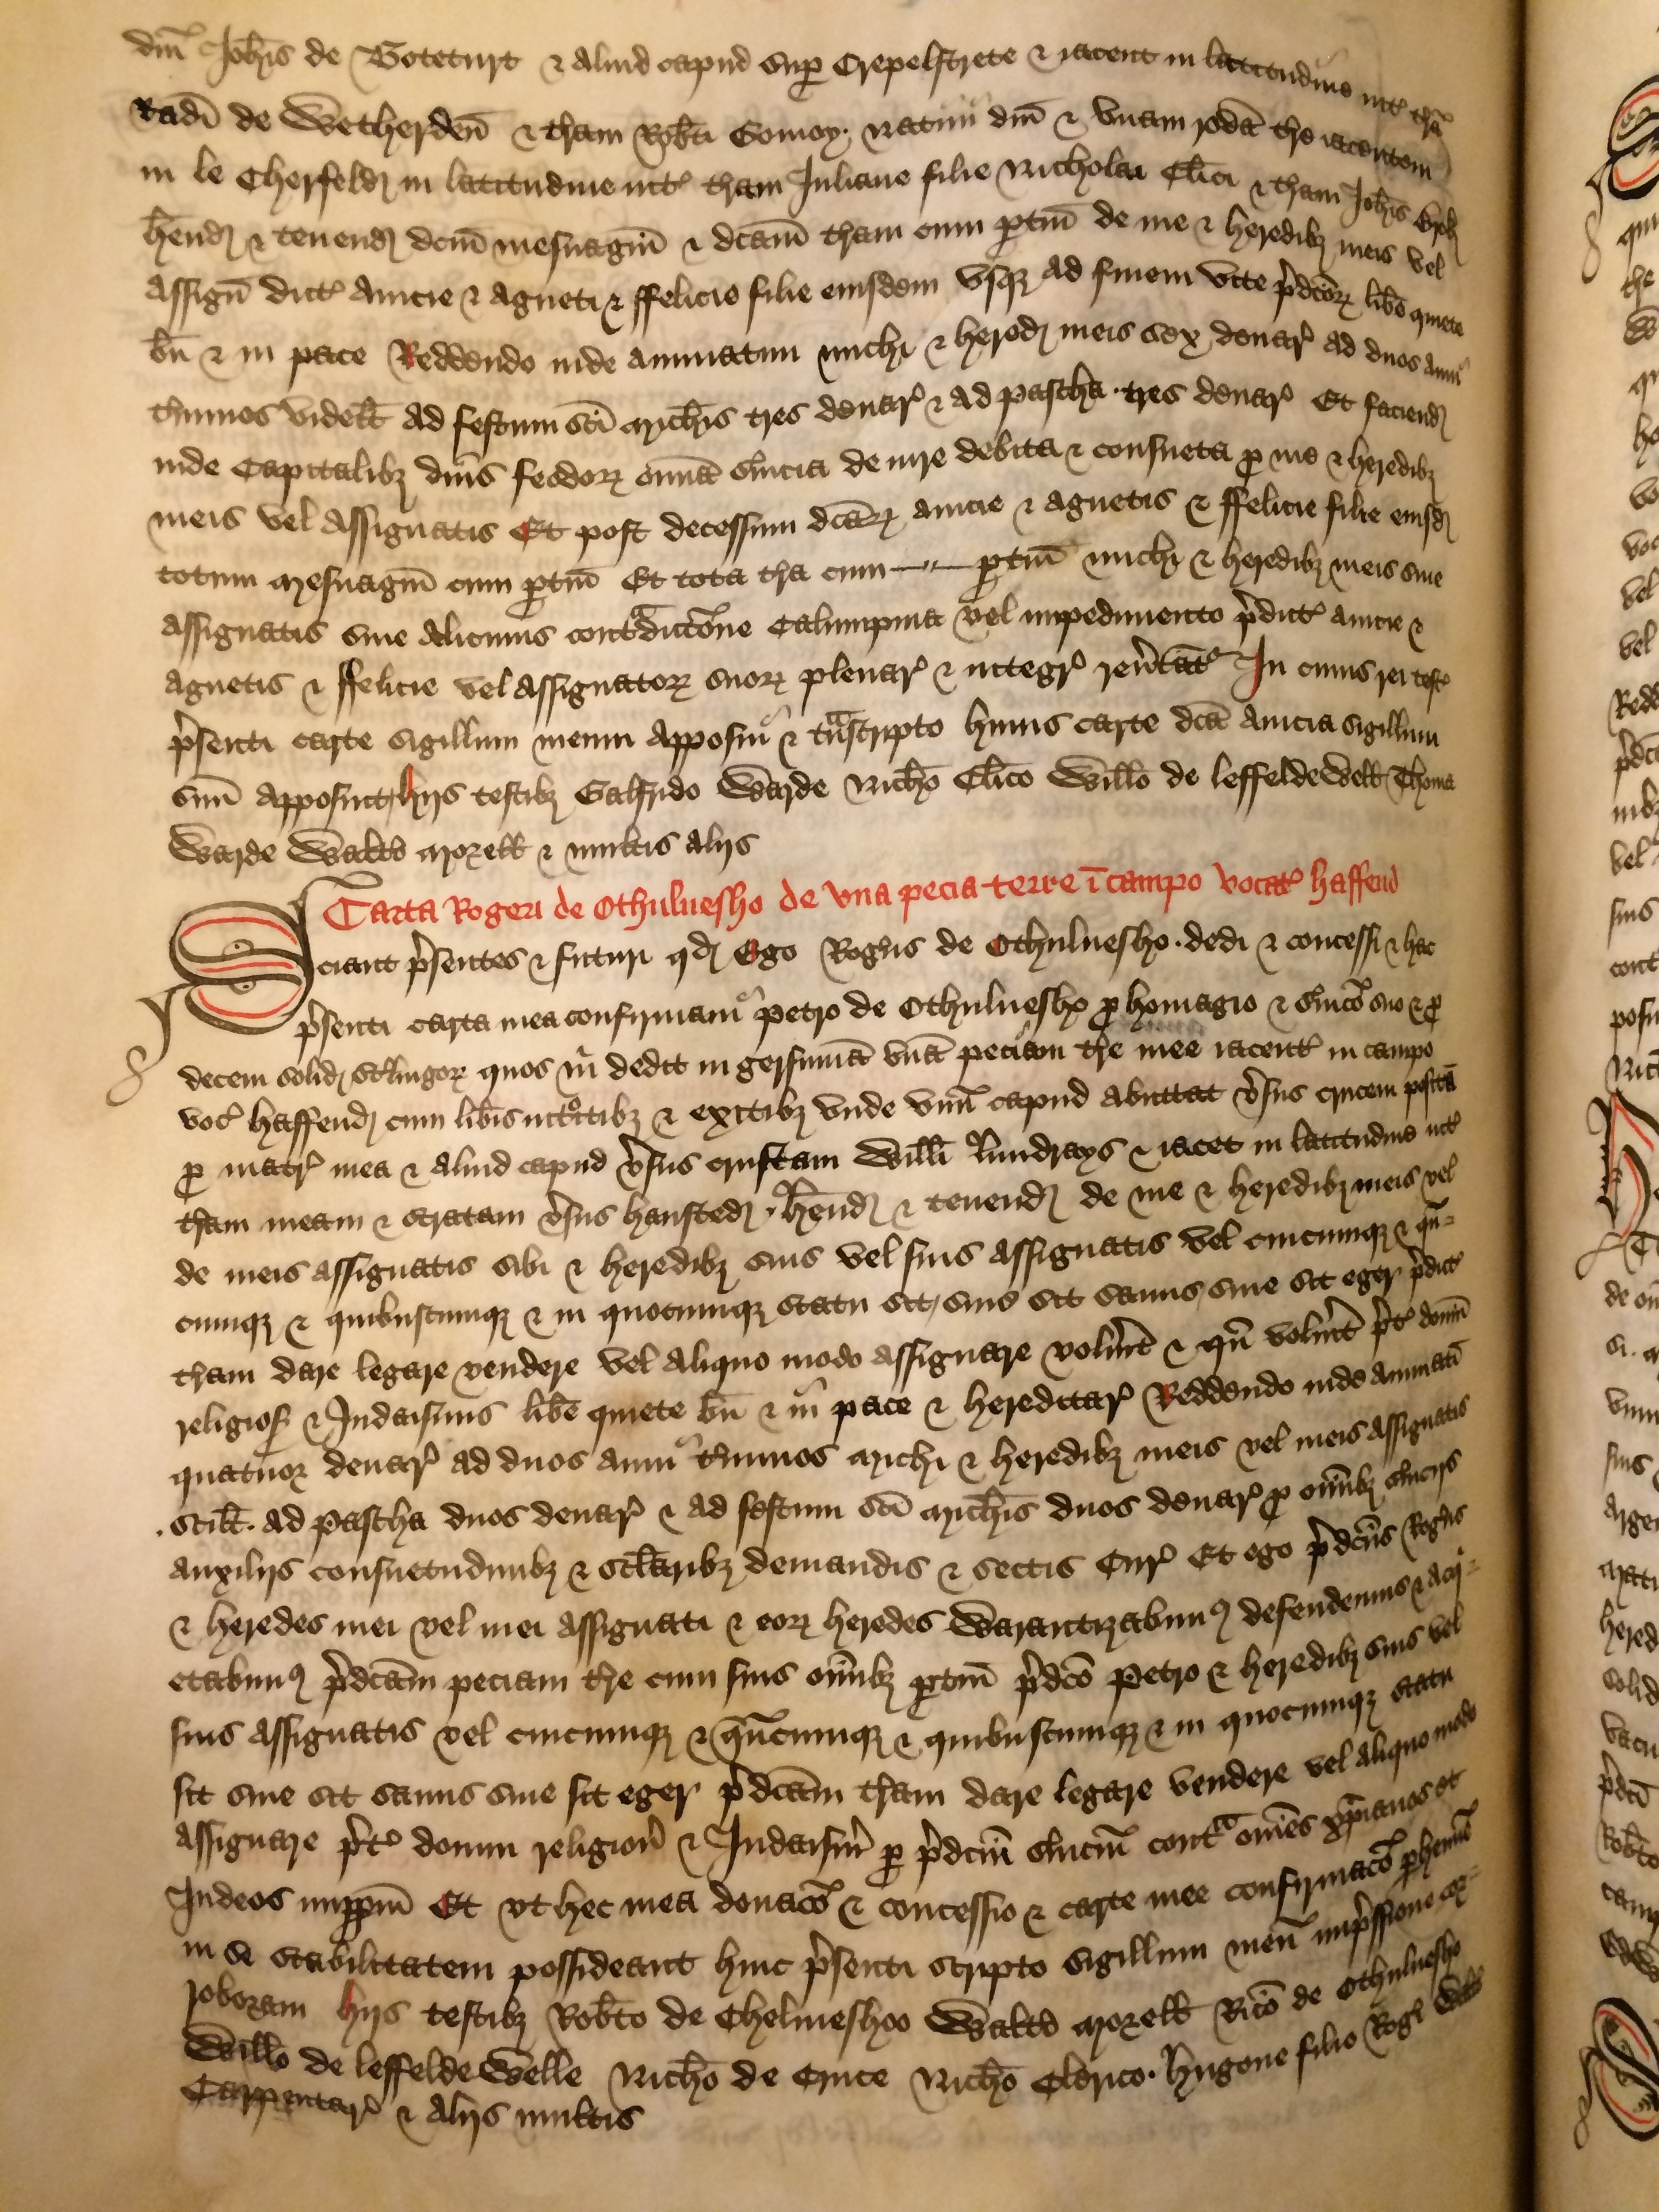 dn̄i Joh̄is de Boteturt & aliud capud sup̱ Crepelstrete & iacent in latitudine int' t'rā
Radī de Wetherden̄ & t'ram Rob̄ti Gomoy natiui dn̄i & vnam rodā t're iacentem
in le Cherfeld in latitudine int' t'ram Juliane filie Nicholai Cl̄ici & t'ram Joh̄is
h̄end & tenend dc̄m mesuagiū & dc̄am t'ram cum p̱tin̄ de me & heredibȝ meis vel
assign̄ dict' Amicie & Agneti & ffelicie filie eiusdem vsqȝ ad finem vite p̄dc̄arꝝ lib̄e quiete
bn̄ & in pace Reddendo inde annuatim michi & hered meis sex denar' ad duos anni
t'minos videlt̄ ad festum sc̄i Mich̄is tres denar' & ad pascha tres denar' Et faciend
inde Capitalibȝ dn̄is feodorꝝ om̄ia s'uicia de iure debita & consueta p̱ me & heredibȝ
meis vel assignatis Et post decessum dc̄arꝝ Amicie & Agnetis & ffelicie filie eiusd
totum mesuagiū cum p̱tin̄ Et tota t'ra cum p̱tin̄ michi & heredibȝ meis siue
assignatis sine alicuius contᵃdicc̄one Calumpnia vel impedimento p̄dict' Amicie &
Agnetis & ffelicie vel assignatorꝝ suorꝝ plenar' & integr' reu'tat' In cuius rei test'
p̄senti carte sigillum meum apposui & tᵃnscripto huius carte dc̄a Amicia sigillum
suū apposuit hijs testibȝ Galfrido Warde Nich̄o Cl̄ico Will̄o de leffeldewell̄ Thoma
Warde Walt̄o Morell̄ & multis alijs
Carta Rogeri de Othuluesho de vna pecia terre ī campo vocat' haffend
Sciant p̄sentes & futuri qd Ego Rog'us de Othuluesho dedi & concessi & hac
p̄senti carta mea confirmaui petro de Othuluesho p̱ homagio & s'uic̄o suo & p̱
decem solid st'lingorꝝ quos m̄ dedit in gersumā vnā peciam t're mee iacent' in campo
voc' haffend cum lib̄is intᵒitibȝ & exitibȝ vnde vnū capud abuttat v'sus crucem positā
p̱ matr' mea & aliud capud v'sus cruftam Will̄i Lundrays & iacet in latitudine int'
t'ram meam & stratam v'sus hausted h̄end & tenend de me & heredibȝ meis vel
de meis assignatis sibi & heredibȝ suis vel suis assignatis vel cuicumqȝ & qn̄-
cumqȝ & quibuscumqȝ & in quocumqȝ statu sit, siue sit sanus, siue sit eger p̄dict'
t'ram dare legare vendere vel aliquo modo assignare volu'it & qn̄ volu'it p̄t' domū
religios' & Judaismus lib̄e quiete bn̄ & in pace & hereditar' Reddendo inde annuatī
quatuor denar' ad duos anni t'minos michi & heredibȝ meis vel meis assignatis
scilt̄ ad Pascha duos denar' & ad festum sc̄i Mich̄is duos denar' p̱ om̄ibȝ s'uicijs
auxilijs consuetudinibȝ & sc̄laribȝ demandis & sectis Cur' Et ego p̄dc̄us Rog'us
& heredes mei vel mei assignati & eorꝝ heredes Warantizabimꝰ defendemus & acqⁱ-
etabimꝰ p̄dc̄am peciam t're cum suis om̄ibȝ p̱tin̄ p̄dc̄o Petro & heredibȝ suis vel
suis assignatis vel cuicumqȝ & qn̄cumqȝ & quibuscumqȝ & in quocumqȝ statu
sit siue sit sanus siue sit eger p̄dc̄am t'ram dare legare vendere vel aliquo modo
assignare p̄t' domū religion̄ & Judaism̄ p̱ p̄dc̄m s'uiciū contᵃ om̄es xp̄ianos et
Judeos imp̱p̱m Et vt hec mea donac̄o & concessio & carte mee confirmac̄o p̱hennē
in se stabilitatem possideant huic p̄senti scripto sigillum meū imp̄ssione cor-
roboraui hijs testibȝ Rob̄to de Chelmeshoo Walt̄o Morell̄ Ric̄o de Othuluesho
Will̄o de leffeldewelle Nich̄o de Cruce Nich̄o Clerico Hugone filio Rog'i
Carpentar' & alijs multis